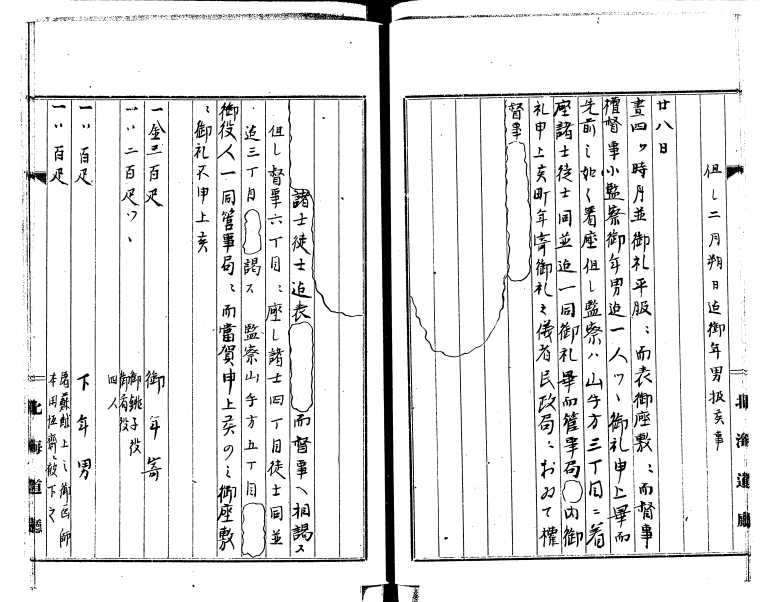 但し二月朔日迄御年男扱亥事
廿八日
晝四ツ時月並御礼平服ニ而表御座敷ニ而督事
權督事小監察御年男迄一人ツヽ御礼申上畢而
先前之如く着座但し監察ハ山手方三丁目ニ着
座諸士徒士同並迄一同御礼畢而管事局 内御
礼申上亥町年寄御礼之儀者民政局ニおゐて權
督事
北海道廳
諸士徒士迄表 而督事へ相謁ス
但し督事六丁目ニ座し諸士四丁目徒士同並
迄三丁目 謁ス 監察山手方五丁目
御役人一同管事局ニ而當賀申上亥のミ御座敷
ニ御礼不申上亥
一金三百疋 御年寄
一〃二百疋ツヽ 御銚子役 御肴役 四人
一〃百疋 下年男
一〃百疋 屠蘇献上之御医師 本田恒齋被下之
北海道廳